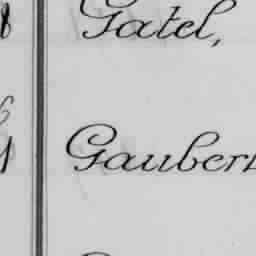 Gatel,
Gaubert